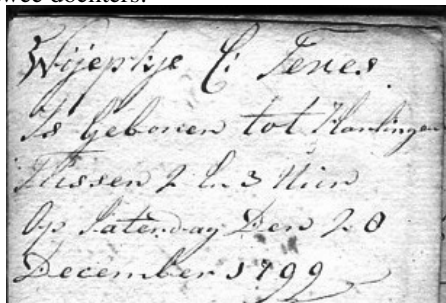 twee dochters.
Wijepkje C: Tenes.
Is Geboren tot Harlingen
Tussen 2 En 3 Uur
Op Saterdag Den 28
December 1799